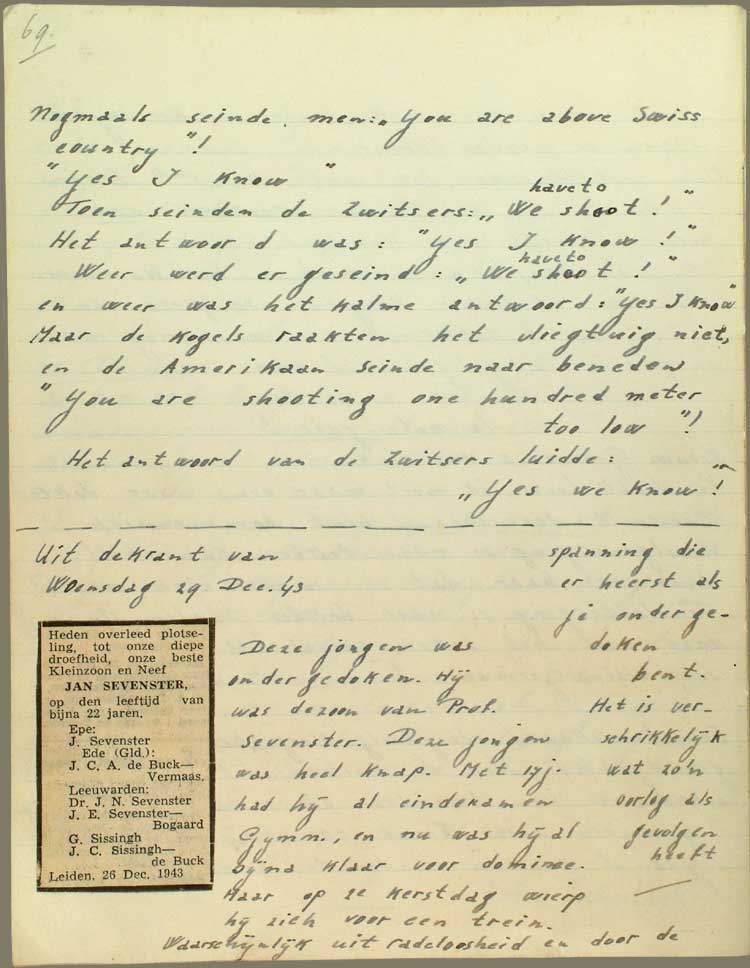 69.
Nogmaals seinde men: „You are above Swiss
country"!
"Yes I know"
Toen seinden de Zwitsers: „We have to shoot!"
Het antwoord was: "Yes I know!"
Weer werd er geseind: „We have to shoot!"
en weer was het kalme antwoord: "Yes I know"
Maar de kogels raakten het vliegtuig niet,
en de Amerikaan seinde naar beneden
"You are shooting one hundred meter
too low"!
Het antwoord van de Zwitsers luidde:
„Yes we know"!
Uit de krant van
Woensdag 29 Dec. 43
Heden overleed plotse-
ling, tot onze diepe
droefheid, onze beste
Kleinzoon en Neef
JAN SEVENSTER,
op den leeftijd van
bijna 22 jaren.
Epe:
J. Sevenster
Ede (Gld.):
J. C. A. de Buck—
Vermaas.
Leeuwarden:
Dr. J. N. Sevenster
J. E. Sevenster—
Bogaard
G. Sissingh
J. C. Sissingh—
de Buck
Leiden, 26 Dec. 1943
Deze jongen was
ondergedoken. Hij
was de zoon van Prof.
Sevenster. Deze jongen
was heel knap. Met 17j.
had hij al eindexamen
Gymn., en nu was hij al
bijna klaar voor dominee.
Maar op 2e kerstdag wierp
hij zich voor een trein.
Waarschijnlijk uit radeloosheid en door de
spanning die
er heerst als
je onderge-
doken
bent.
Het is ver-
schrikkelijk
wat zo'n
oorlog als
gevolgen
heeft